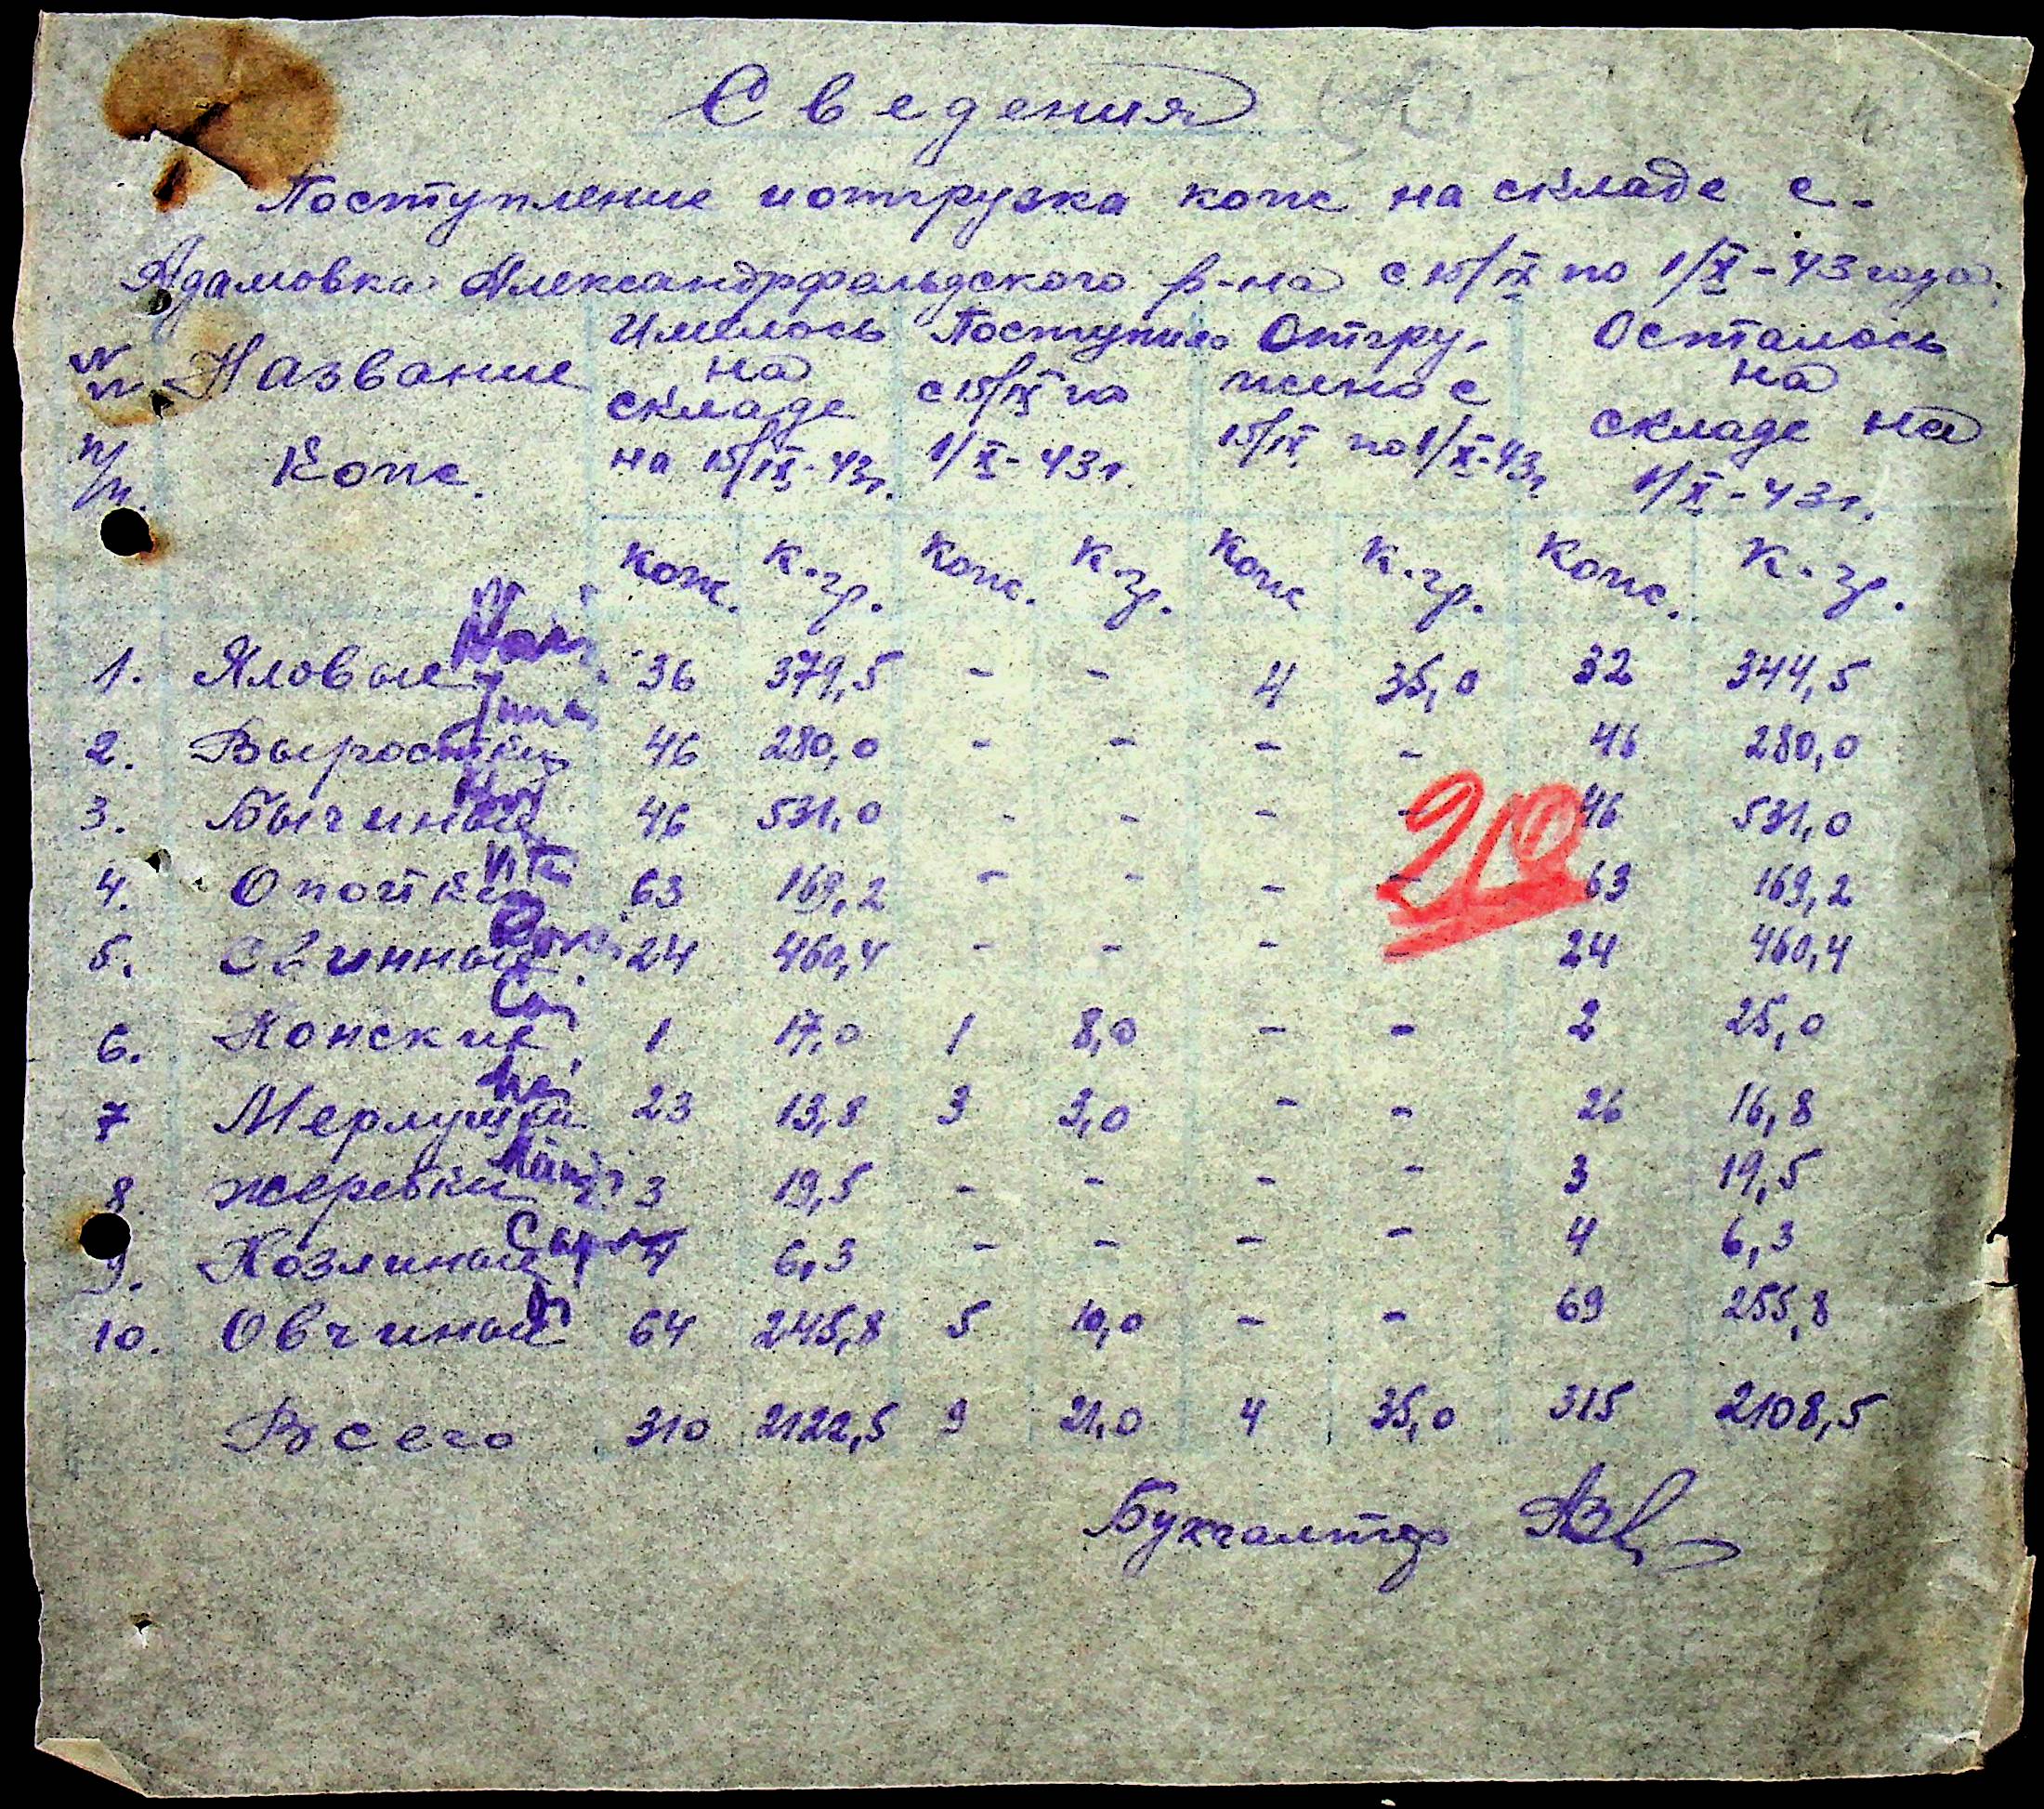 Сведения
Поступление и отгрузка кож на складе с.
Адамовка Александрфельдского р-на с 15/IX по 1/X-43 года.
№ п/п. Название Кож.
Имелось на складе на 15/IX-43г.
Поступило с 15/IX по 1/X-43г.
Отгружено с 15/IX по 1/X-43г
Осталось на складе на 1/X-43г.
Кож. К.гр. Кож. К.гр. Кож К.гр. Кож. К.гр.
1. Яловые 36 379,5 - - 4 35,0 32 344,5
2. Выростки 46 280,0 - - - - 46 280,0
3. Бычиной 46 531,0 - - - - 46 531,0
210
4. Опойки 63 169,2 - - - - 63 169,2
5. Свинной 24 460,4 - - - - 24 460,4
6. Конские 1 17,0 1 8,0 - - 2 25,0
7 Мерлушки 23 13,8 3 3,0 - - 26 16,8
8. жеребки 3 19,5 - - - - 3 19,5
9. Козлиной 4 6,3 - - - - 4 6,3
10. Овчиной 64 245,8 5 10,0 - - 69 255,8
Всего 310 2122,5 9 21,0 4 35,0 315 2108,5
Бухгалтер